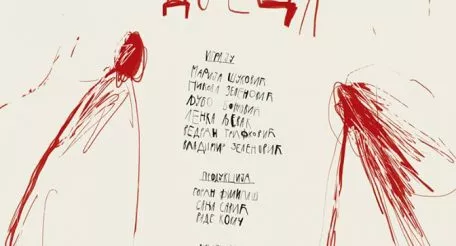 ИГРАЈУ
МАРИЈА ШУКОВИЋ
НИКОЛА ЗЕЛЕНОВИЋ
ЉУБО БОЖОВИЋ
ЛЕНКА
ВЕДРАН ТРИФКОВИЋ
ВЛАДИМИР ЗЕЛЕНОВИЋ
ПРОДУКЦИЈА
ГОРАН ФИЛИПАШ
САЊА САВИЋ
РАДЕ